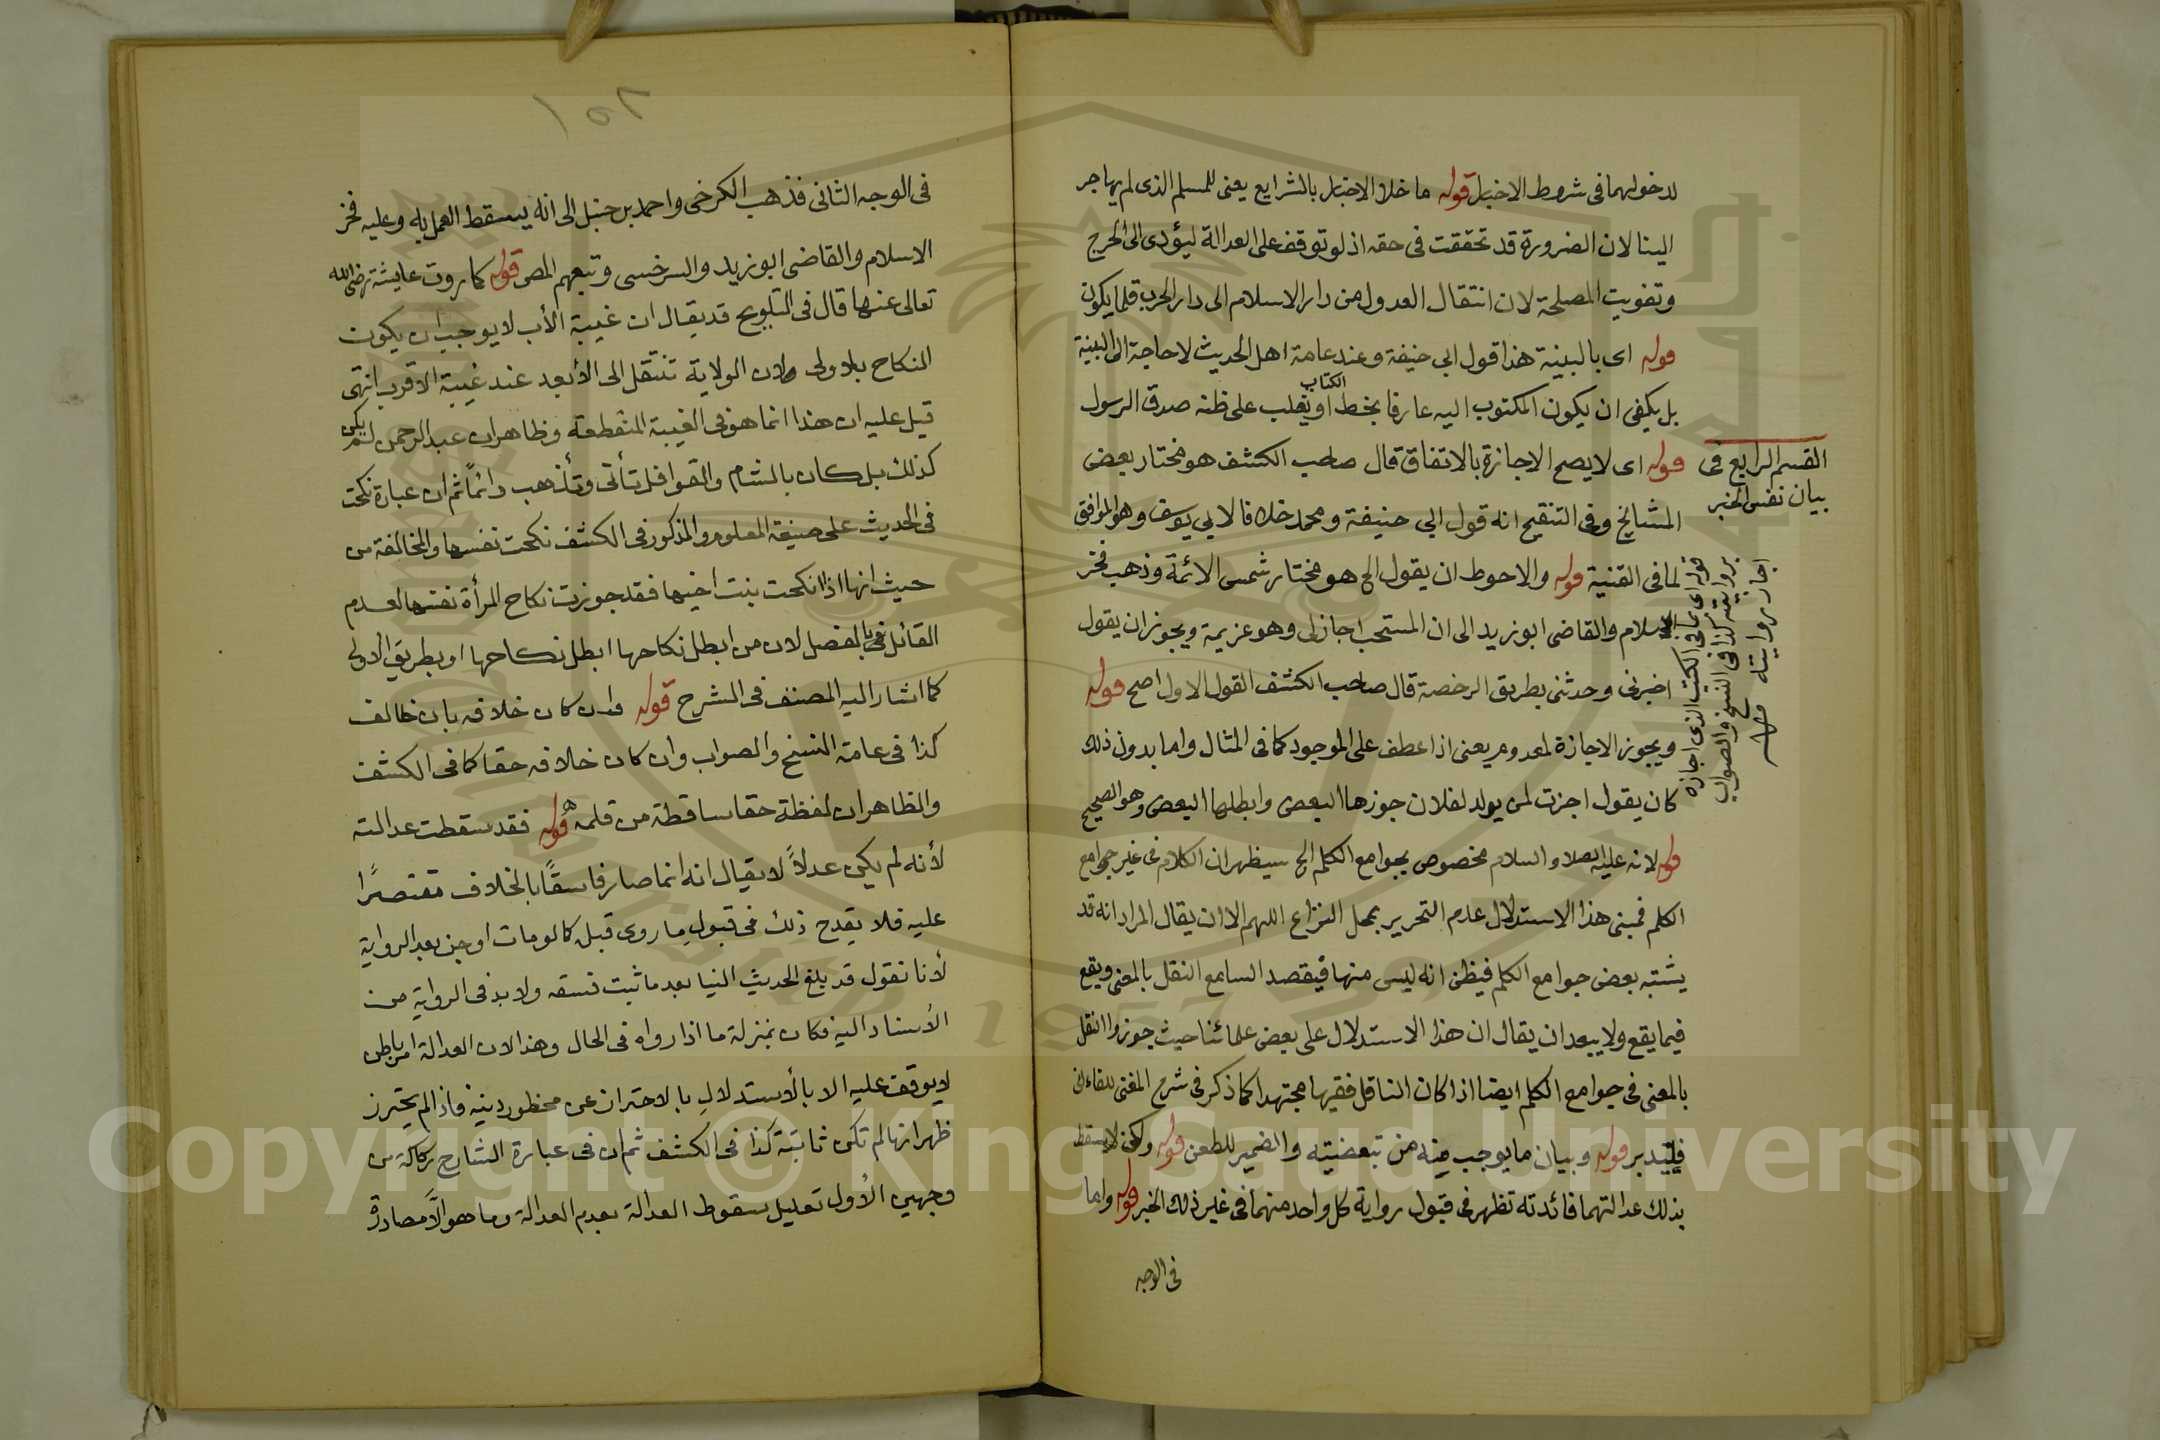 لدخولهما فى شروط الاخبار قوله ما خلا الاخبار بالشرايع يعنى للمسلم الذى لم يهاجر
الينا لان الضرورة قد تحققت فى حقه اذ لو توقف على العدالة ليؤدى الى الحرج
وتفويت المصلحة لان انتقال العدول من دار الاسلام الى دار الحرب قلما يكون
قوله اى بالبينة هذا قول ابي حنيفة وعند عامة اهل الحديث لاحاجة الى البينة
بل يكفى ان يكون المكتوب اليه عارفا بخط الكتاب او يغلب على ظنه صدق الرسول
قوله اى لا يصح الاجازة بالاتفاق قال صاحب الكشف هو مختار بعض
المشايخ وفى التنقيح انه قول ابي حنيفة ومحمد خلافا لابي يوسف وهو الموافق
لما فى القنية قوله والاحوط ان يقول الخ هو مختار شمس الائمة وذهب فخر
الاسلام والقاضى ابو زيد الى ان المستحب اجاز لى وهو عزيمة ويجوز ان يقول
اخبرنى وحدثنى بطريق الرخصة قال صاحب الكشف القول الاول اصح قوله
ويجوز الاجازة لمعدوم يعنى اذا عطف على الموجود كما فى المثال واما بدون ذلك
كان يقول اجزت لمن يولد لفلان جوزها البعض وابطلها البعض وهو الصحيح
قوله لانه عليه الصلاة والسلام مخصوص بجوامع الكلم الخ سيظهر ان الكلام فى غير جوامع
الكلم فمبنى هذا الاستدلال عدم التحرير بمحل النزاع اللهم الا ان يقال المراد انه قد
يشتبه بعض جوامع الكلم فيظن انه ليس منها فيقصد السامع النقل بالمعنى ويقع
فيما يقع ولا يبعد ان يقال ان هذا الاستدلال على بعض علمائنا حيث جوزوا النقل
بالمعنى فى جوامع الكلم ايضا اذا كان الناقل فقيها مجتهدا كما ذكر فى شرح المغنى للقاءانى
فليتدبر قوله وبيان ما يوجب منه من تبعضيته والضمير للطعن قوله ولكن لا يسقط
بذلك عدالتهما فائدته تظهر فى قبول رواية كل واحد منهما فى غير ذلك الخبر قوله واما
فى الوجه
القسم الرابع فى
بيان نفس الخبر
قوله اى بما فى الكتب الذى اجازه
بروايته كذا فى النسخ والصواب
اجاز بروايته
١٥٨
فى الوجه الثانى فذهب الكرخى واحمد بن حنبل الى انه يسقط العمل به وعليه فخر
الاسلام والقاضى ابو زيد والسرخسى وتبعهم المص قوله كما روت عايشة رضى الله
تعالى عنها قال فى التلويح قد يقال ان غيبة الأب لا يوجب ان يكون
النكاح بلا ولى لان الولاية تنتقل الى الأبعد عند غيبة الاقرب انتهى
قيل عليه ان هذا انما هو فى الغيبة المنقطعة وظاهر ان عبد الرحمن لم يكن
كذلك بل كان بالشام والقوافل تأتى وتذهب دائماً ثم ان عبارة نكحت
فى الحديث على صيغة المعلوم والمذكور فى الكشف نكحت نفسها والمخالفة من
حيث انها اذا انكحت بنت اخيها فقد جوزت نكاح المرأة نفسها لعدم
القائل بالفصل لان من ابطل نكاحها ابطل نكاحها او بطريق الاولى
كما اشار اليه المصنف فى الشرح قوله وان كان خلافه بان خالف
كذا فى عامة النسخ والصواب وان كان خلافه حقا كما فى الكشف
والظاهر ان لفظة حقا ساقطة من قلمه قوله فقد سقطت عدالته
لأنه لم يكن عدلاً لا يقال انه انما صار فاسقاً بالخلاف مقتصرًا
عليه فلا يقدح ذلك فى قبول ما روى قبل كما لو مات او جن بعد الرواية
لأنا نقول قد بلغ الحديث الينا بعد ما ثبت فسقه ولا بد فى الرواية من
الأسناد اليه فكان بمنزلة ما اذا رواه فى الحال وهذا لان العدالة امر باطن
لا يوقف عليه الا بالأستدلال بالاحتراز عن محظور دينه فاذا لم يحترز
ظهر انها لم تكن ثابتة كذا فى الكشف ثم ان فى عبارة الشارح ركاكة من
وجهين الأول تعليل سقوط العدالة بعدم العدالة وما هو الاّ مصادرة